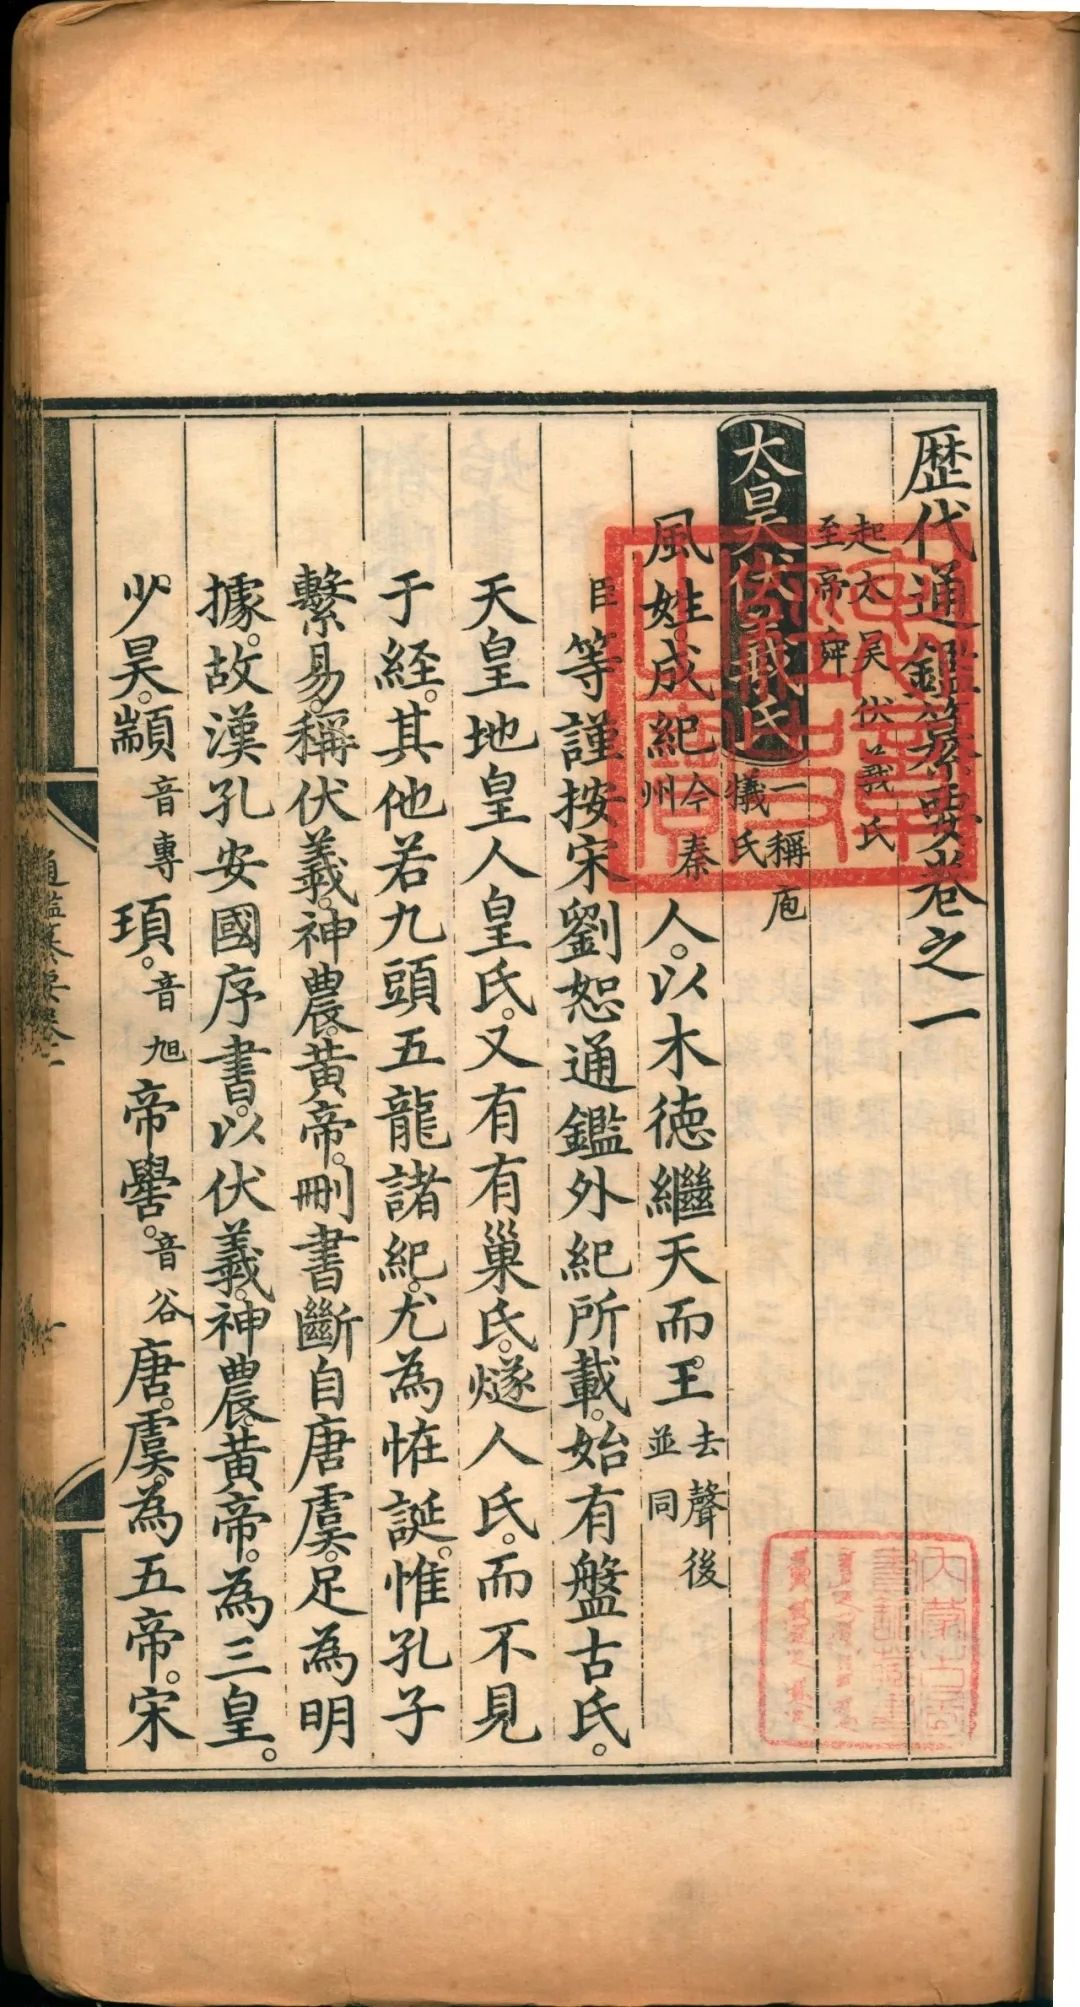 歷代通鑑纂要卷之一
起太昊伏羲氏
至帝舜
太昊伏羲氏一稱庖犧氏
風姓。成紀今秦州人。以木德繼天而王。去聲後並同
臣等謹按宋劉恕通鑑外紀所載。始有盤古氏。
天皇地皇人皇氏。又有有巢氏。燧人氏。而不見
于經。其他若九頭五龍諸紀。尤為恠誕。惟孔子
繫易。稱伏羲。神農。黃帝。刪書斷自唐虞。足為明
據。故漢孔安國序書。以伏羲。神農。黃帝。為三皇。
少昊。顓音專頊。音旭帝嚳。音谷唐。虞。為五帝。宋
通鑑纂要卷一
一